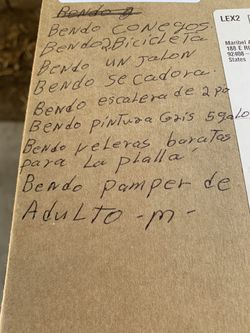 Bendo
Bendo conegos
Bendo 2 Bicicleta
Bendo un jalon
Bendo secadora
Bendo escalera de 2 pa
Bendo pintura Gris 5 galo
Bendo veleras baratas
para La plalla
Bendo pamper de
Adulto -m-
LEX2
Maribel A
188 E R
92408 -
United State